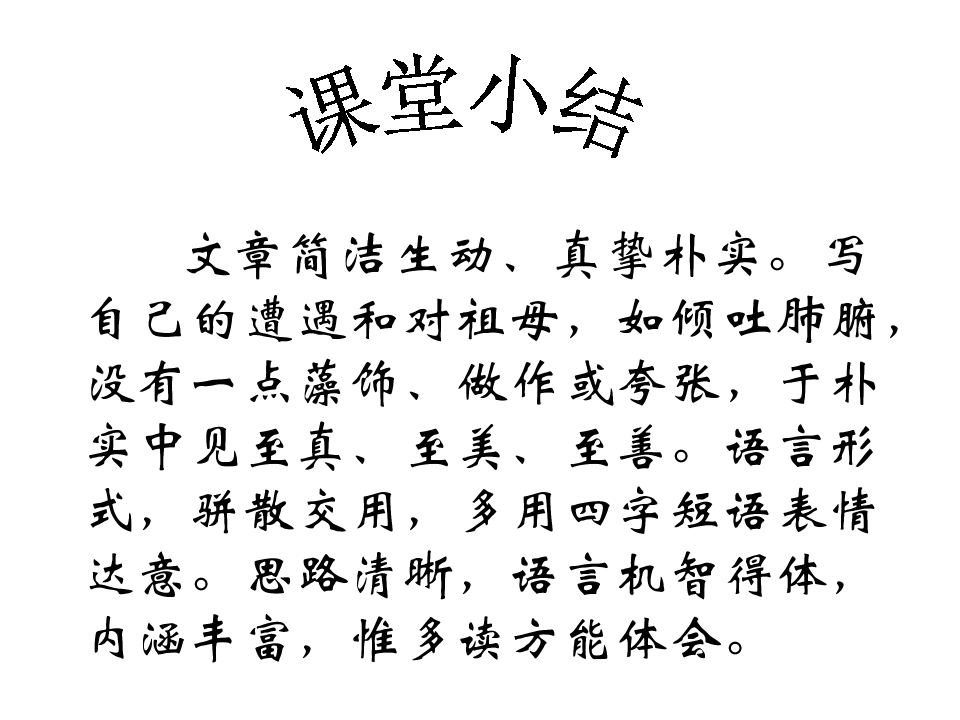 课堂小结
文章简洁生动、真挚朴实。写
自己的遭遇和对祖母，如倾吐肺腑，
没有一点藻饰、做作或夸张，于朴
实中见至真、至美、至善。语言形
式，骈散交用，多用四字短语表情
达意。思路清晰，语言机智得体，
内涵丰富，惟多读方能体会。